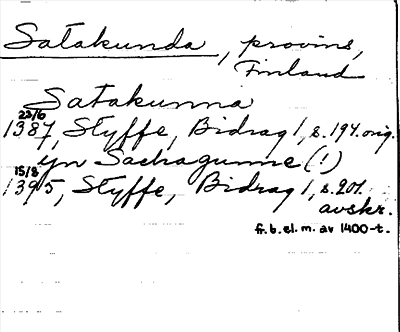 Satakunda, provins,
Finland
Satakunna
22/6
1387, Styffe, Bidrag 1, s. 194. orig.
yn Sachagunne (!)
15/8
1395, Styffe, Bidrag 1, s. 201.
avskr.
fr. b. el. m. av 1400-t.